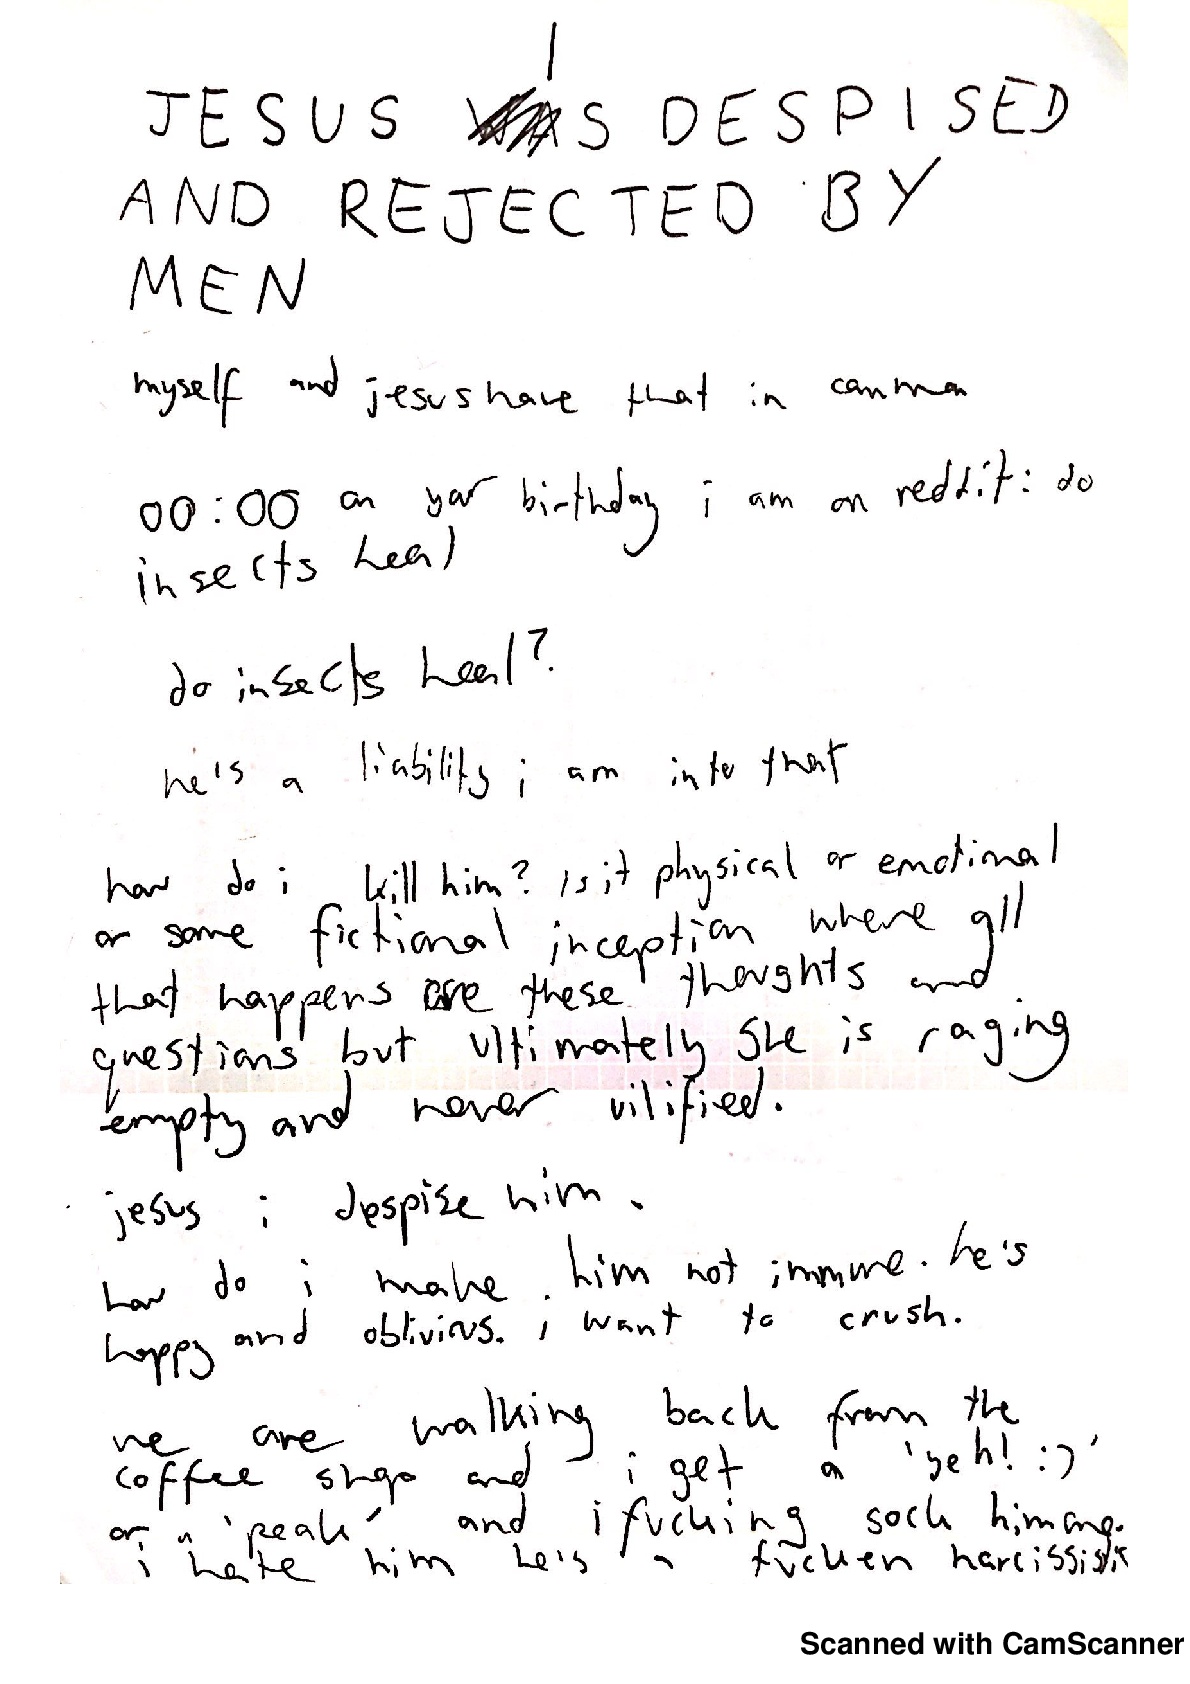 I
JESUS WAS DESPISED
AND REJECTED BY
MEN
myself and jesus have that in common
00:00 on your birthday i am on reddit: do
insects heal
do insects heal?
he's a liability i am into that
how do i kill him? is it physical or emotional
or some fictional inception where all
that happens are these thoughts and
questions but ultimately she is raging
empty and never vilified.
jesus i despise him.
how do i make him not immune. he's
happy and oblivious. i want to crush.
we are walking back from the
coffee shop and i get a 'yeh! :)'
or a 'peak' and i fucking sock him one.
i hate him he's a fucken narcissist
Scanned with CamScanner